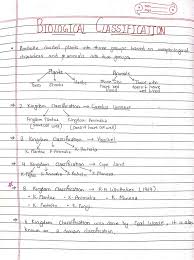 BIOLOGICAL CLASSIFICATION
Aristotle classified plants into three groups based on morphological
characters and animals into two groups
Plants Animals
Trees Shrubs Herbs Those who have red blood Those who don't have red blood
→ 2 Kingdom Classification →
Kingdom Plantae Kingdom Animalia
(cell wall) (doesn't have cell wall)
→ 3 Kingdom Classification → Haeckel
K. Plantae K. Animalia K. Protista
→ 4 Kingdom Classification →
K. Plantae K. Animalia K. Protista K. Monera
→ 5 Kingdom Classification → R.H Whittaker (1969)
• K. Plantae • K. Animalia • K. Monera
• K. Protista • K. Fungi
→ 6 Kingdom Classification was done by Carl Woese. It is also
known as 3 domain classification.